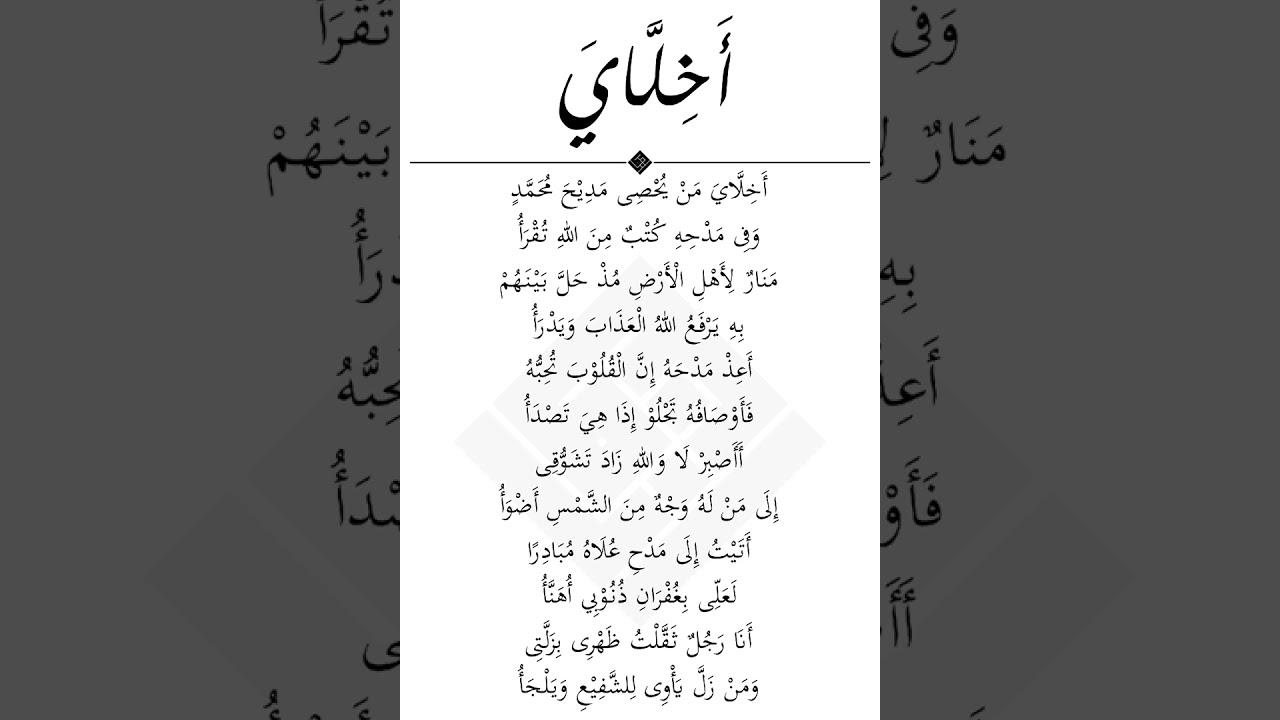 أَخِلَّايَ
أَخِلَّايَ مَنْ يُحْصِى مَدِيْحَ مُحَمَّدٍ
وَفِى مَدْحِهِ كُتْبٌ مِنَ اللهِ تُقْرَأُ
مَنَارٌ لِأَهْلِ الْأَرْضِ مُذْ حَلَّ بَيْنَهُمْ
بِهِ يَرْفَعُ اللهُ الْعَذَابَ وَيَدْرَأُ
أَعِذْ مَدْحَهُ إِنَّ الْقُلُوْبَ تُحِبُّهُ
فَأَوْصَافُهُ تَجْلُوْ إِذَا هِيَ تَصْدَأُ
أَأَصْبِرْ لَا وَاللهِ زَادَ تَشَوُّقِى
إِلَى مَنْ لَهُ وَجْهٌ مِنَ الشَّمْسِ أَضْوَأُ
أَتَيْتُ إِلَى مَدْحِ عُلَاهُ مُبَادِرًا
لَعَلِّى بِغُفْرَانِ ذُنُوْبِي أُهَنَّأُ
أَنَا رَجُلٌ ثَقَّلْتُ ظَهْرِى بِزَلَّتِى
وَمَنْ زَلَّ يَأْوِى لِلشَّفِيْعِ وَيَلْجَأُ